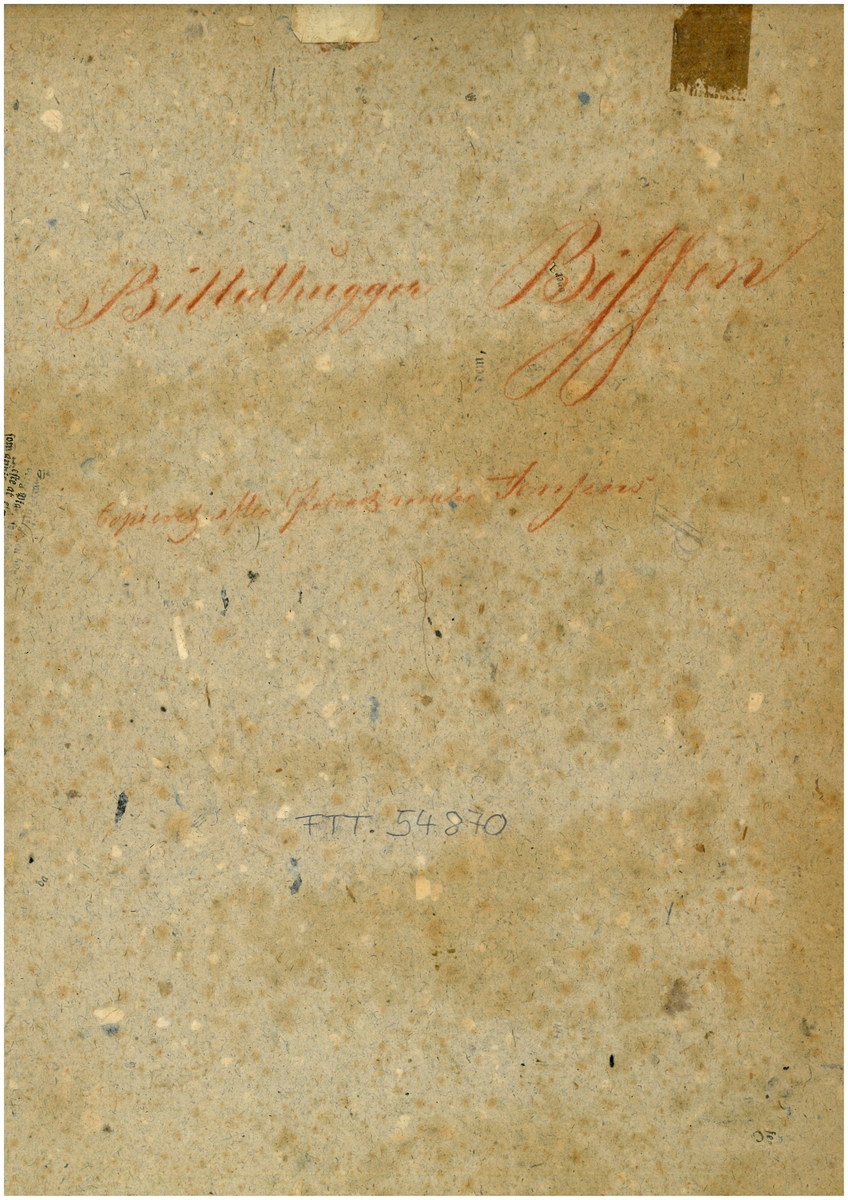 Billedhugger Bissen
Copieret efter Portrætmaler Jensens
FTT. 54.870